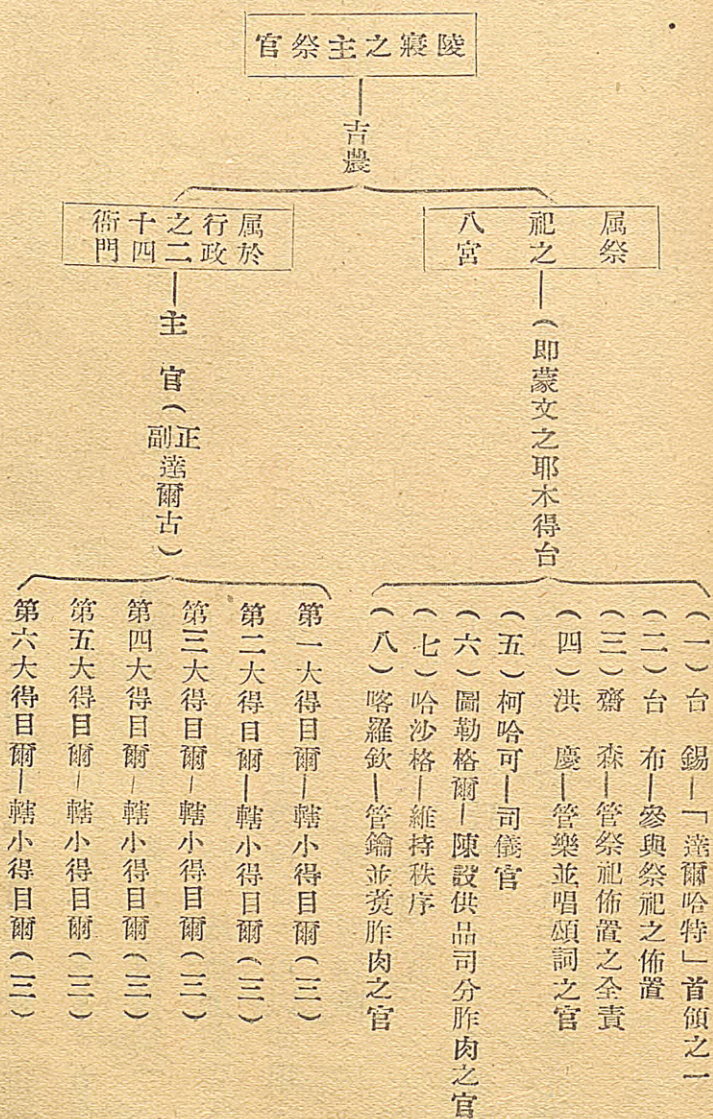 陵寢之主祭官
吉農
属祭祀之八宮
（即蒙文之耶木得台）
（一）台　錫—「達爾哈特」首領之一
（二）台　布—參與祭祀之佈置
（三）齋　森—管祭祀佈置之全責
（四）洪　慶—管樂並唱頌詞之官
（五）柯哈可—司儀官
（六）圖勒格爾—陳設供品司分胙肉之官
（七）哈沙格—維持秩序
（八）喀羅欽—管鑰並煑胙肉之官
属於行政之二十四衙門
主　官（正副達爾古）
第一大得目爾—轄小得目爾（三）
第二大得目爾—轄小得目爾（三）
第三大得目爾—轄小得目爾（三）
第四大得目爾—轄小得目爾（三）
第五大得目爾—轄小得目爾（三）
第六大得目爾—轄小得目爾（三）